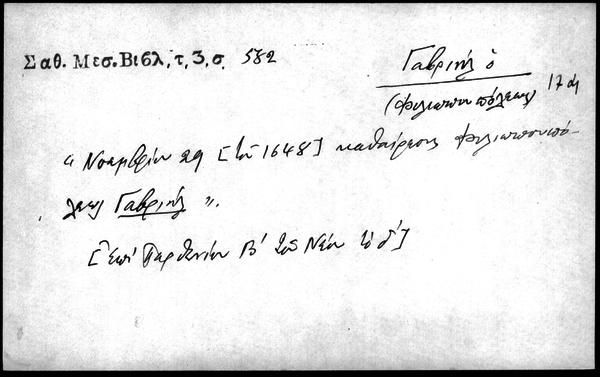 Σαθ. Μεσ. Βιβλ, τ, 3, σ. 582
Γαβριήλ ὁ
(Φιλιππουπόλεως) 17 αἰ
« Νοεμβρίου 29 [τοῦ 1648] καθαίρεσις Φιλιππουπό-
λεως Γαβριήλ ».
[Ἐπὶ Παρθενίου Β' τοῦ Νέου τὸ δ']